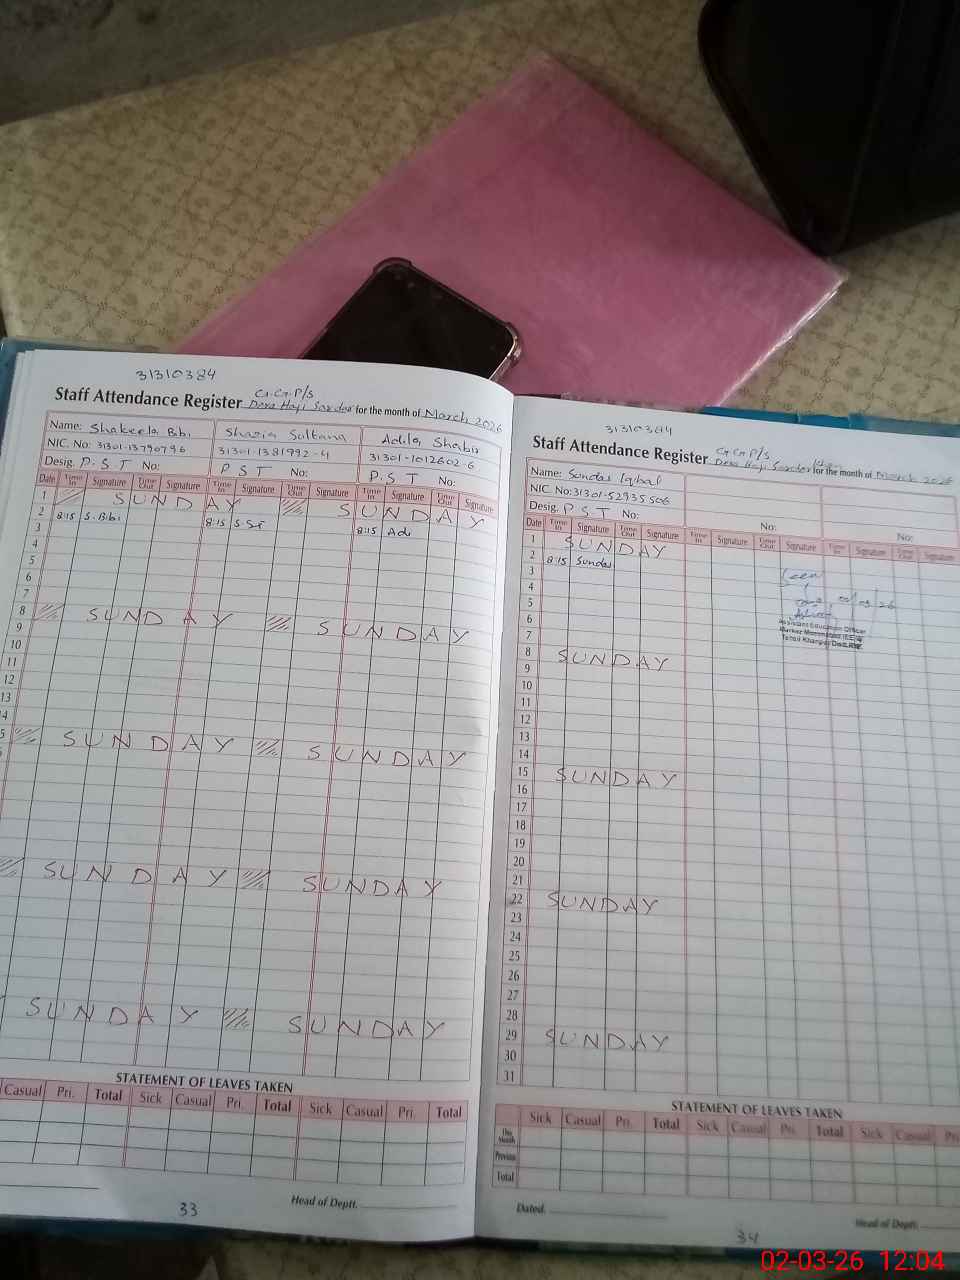 31310384
Staff Attendance Register G.G.P/S Dera Haji Sardar for the month of March 2026
Name: Shakeela Bbi Shazia Sultana Adila Shabir
NIC. No: 31301-1381992-4 31301-1012602-6
Desig. P.S.T No: P S T No: P.S.T No:
Date Time In Signature Time Out Signature Time In Signature Time Out Signature Time In Signature Time Out Signature
1 SUNDAY SUNDAY
2 8:15 S.Bibi 8:15 8:15
3
4
5
6
7
8 SUNDAY SUNDAY
9
10
11
12
13
14
15 SUNDAY SUNDAY
SUNDAY SUNDAY
SUNDAY SUNDAY
STATEMENT OF LEAVES TAKEN
Casual Pri. Total Sick Casual Pri. Total Sick Casual Pri. Total
Head of Deptt.
33
31310384
Staff Attendance Register G.G.P/S Dera Haji Sardar for the month of March 2026
Name: Sondas Iqbal
NIC. No: 31301-52935506
Desig. P S T No: No: No:
Date Time In Signature Time Out Signature Time In Signature Time Out Signature Time In Signature Time Out Signature
1 SUNDAY
2 8:15 Sondas
3 Seen
4
5
6 Assistant Education Officer
7
8 SUNDAY
9
10
11
12
13
14
15 SUNDAY
16
17
18
19
20
21
22 SUNDAY
23
24
25
26
27
28
29 SUNDAY
30
31
STATEMENT OF LEAVES TAKEN
Sick Casual Pri. Total Sick Casual Pri. Total Sick Casual
This Month
Previous
Total
Dated. Head of Deptt.
34
02-03-26 12:04